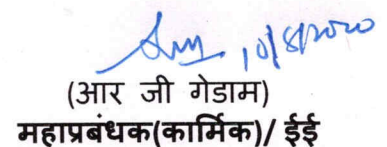 10/8/2020
(आर जी गेडाम)
महाप्रबंधक(कार्मिक)/ ईई